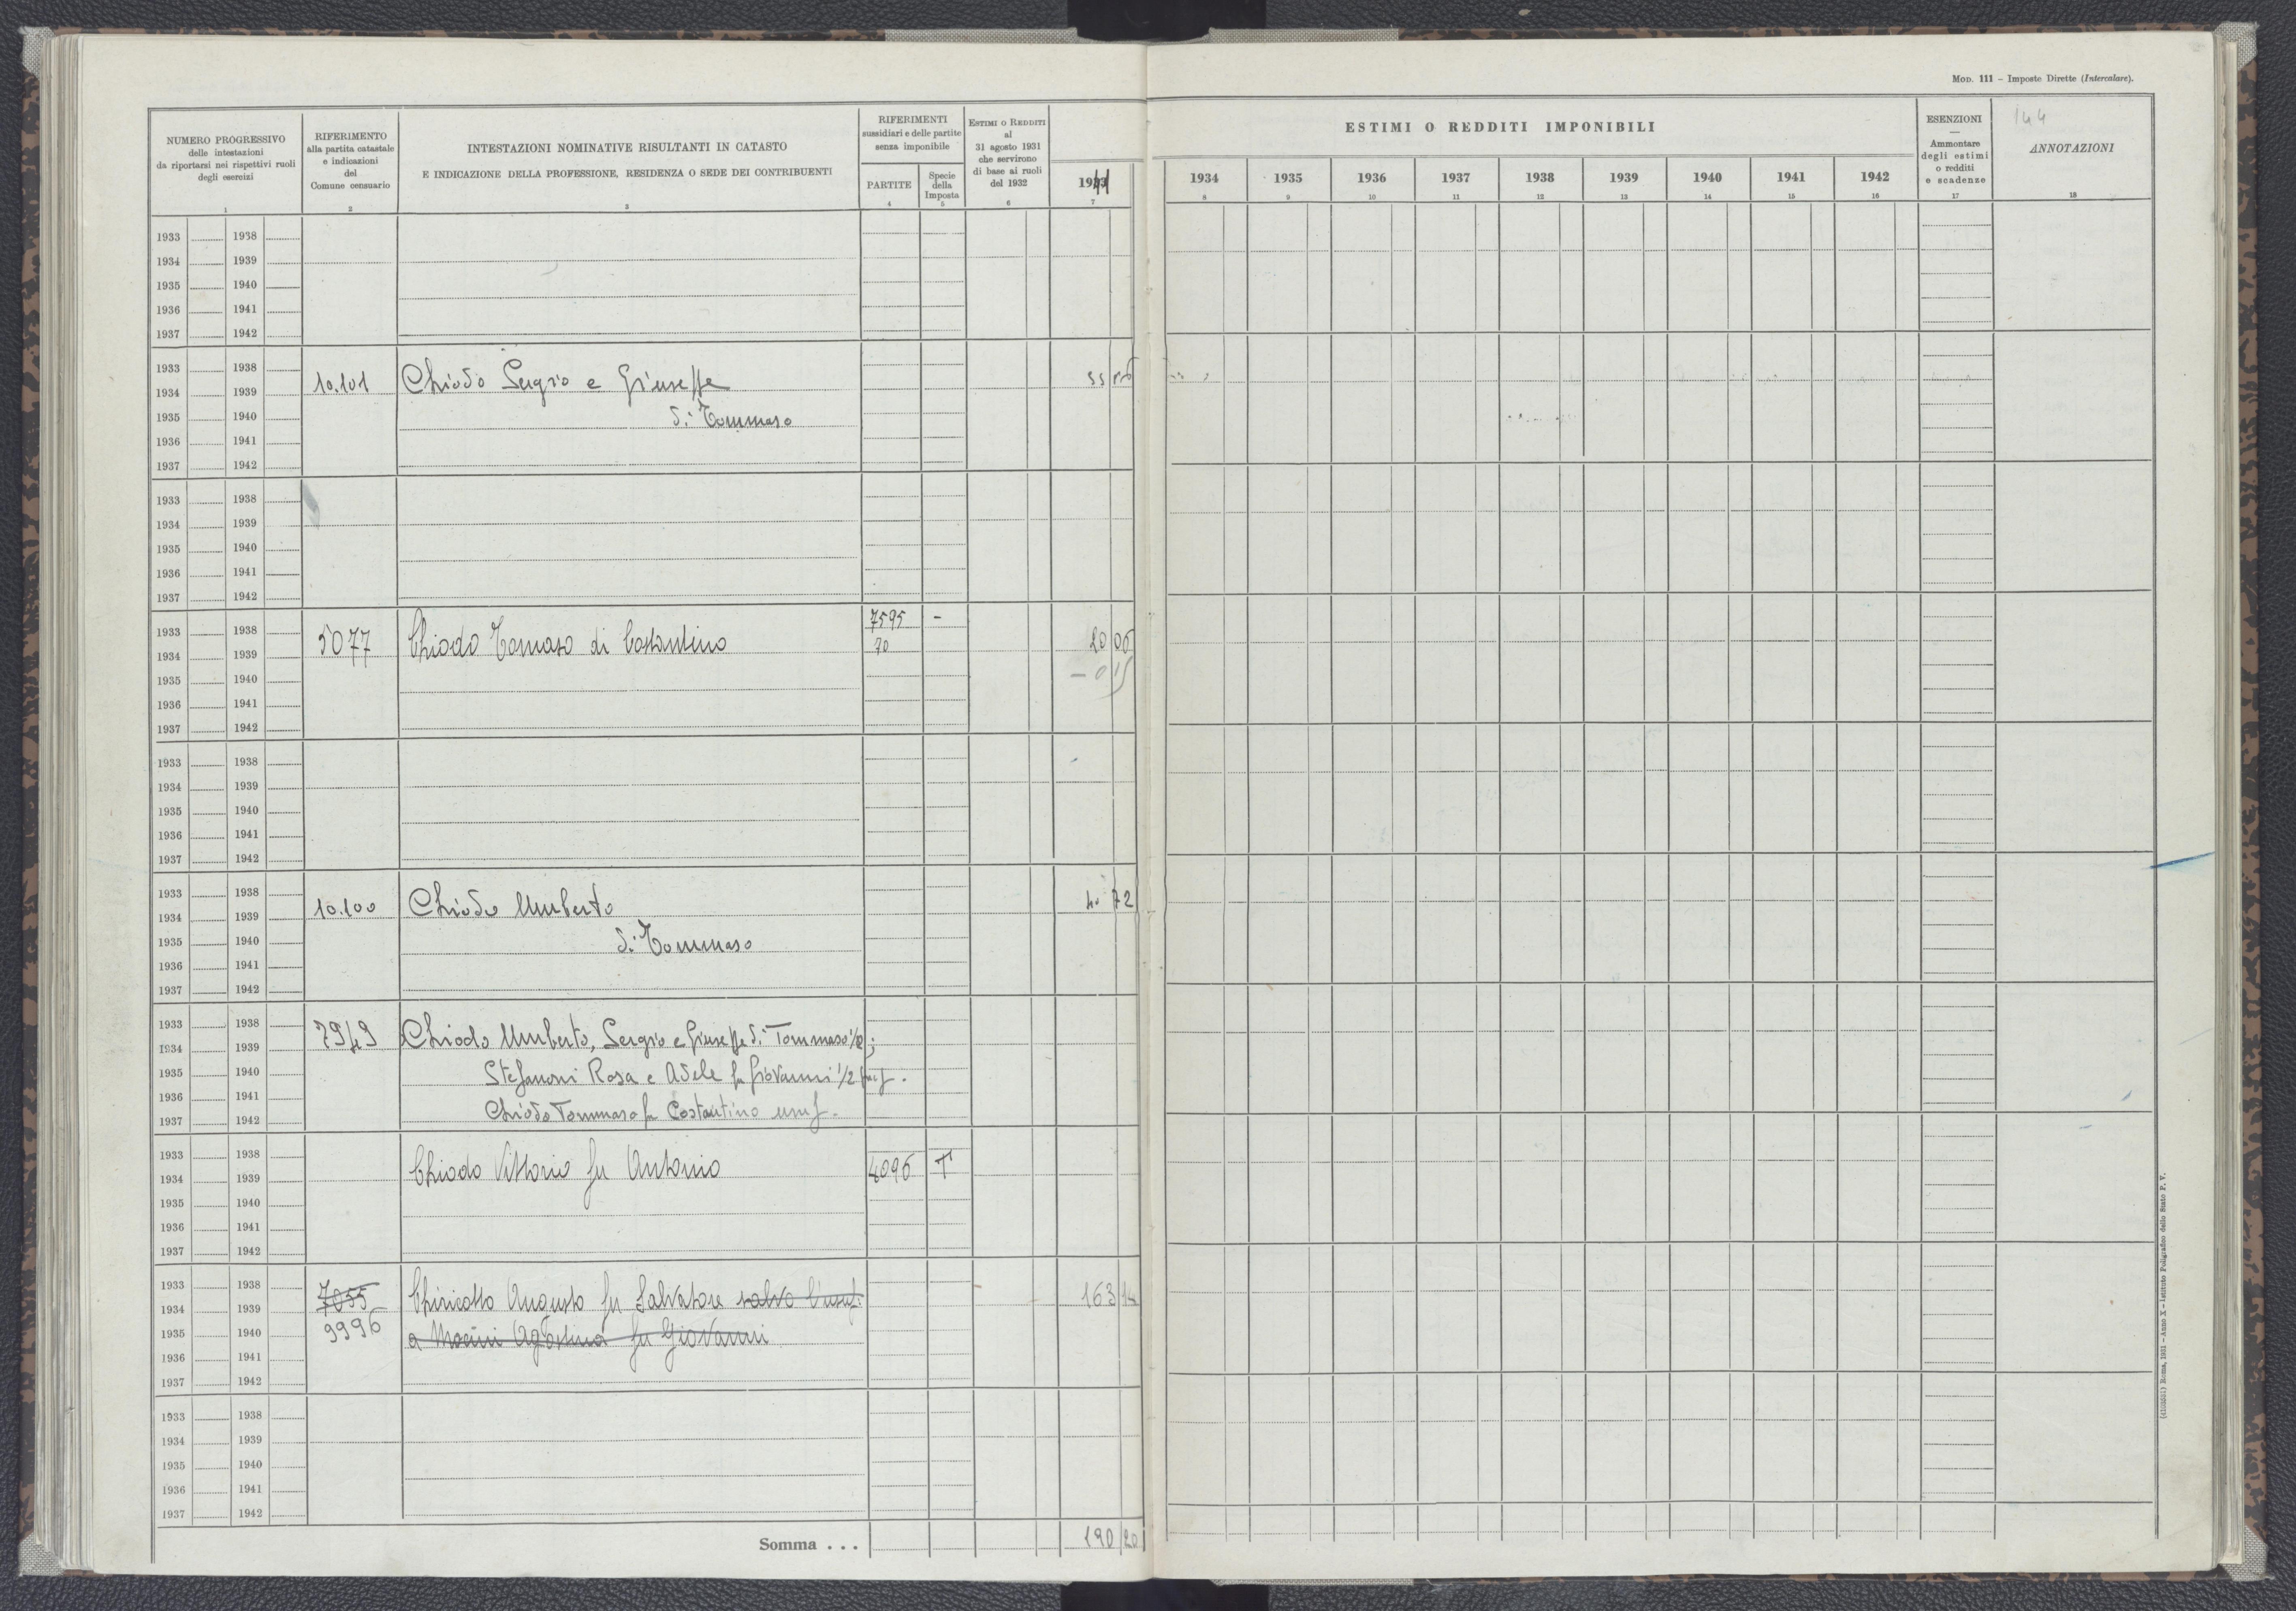 MOD. 111 – Imposte Dirette (Intercalare).
144
NUMERO PROGRESSIVO
delle intestazioni
da riportarsi nei rispettivi ruoli
degli esercizi
1
RIFERIMENTO
alla partita catastale
e indicazioni
del
Comune censuario
2
INTESTAZIONI NOMINATIVE RISULTANTI IN CATASTO
E INDICAZIONE DELLA PROFESSIONE, RESIDENZA O SEDE DEI CONTRIBUENTI
3
RIFERIMENTI
sussidiari e delle partite
senza imponibile
PARTITE
4
Specie
della
Imposta
5
ESTIMI O REDDITI
al
31 agosto 1931
che servirono
di base ai ruoli
del 1932
6
7
ESTIMI O REDDITI IMPONIBILI
1934 1935 1936 1937 1938 1939 1940 1941 1942
8 9 10 11 12 13 14 15 16
ESENZIONI
Ammontare
degli estimi
o redditi
e scadenze
17
ANNOTAZIONI
18
1933 1938
1934 1939
1935 1940
1936 1941
1937 1942
1933 1938
10.101 Chiodo Sergio e Giuseppe
1934 1939
di Tommaso
1935 1940
1936 1941
1937 1942
1933 1938
1934 1939
1935 1940
1936 1941
1937 1942
7595 –
1933 1938
5077 Chiodo Tomaso di Costantino 70 20 06
1934 1939
– 0 15
1935 1940
1936 1941
1937 1942
1933 1938
1934 1939
1935 1940
1936 1941
1937 1942
1933 1938
10.100 Chiodo Umberto 72
1934 1939
di Tommaso
1935 1940
1936 1941
1937 1942
1933 1938
7949 Chiodo Umberto, Sergio e Giuseppe di Tommaso 1/2;
1934 1939
Stefanoni Rosa e Adele fu Giovanni 1/2
1935 1940
1936 1941
Chiodo Tommaso fu Costantino usuf.
1937 1942
1933 1938
Chiodo Vittorio fu Antonio 4096 T
1934 1939
1935 1940
1936 1941
1937 1942
1933 1938
7055 Chiricotto Augusto fu Salvatore salvo l'usuf. 163 14
1934 1939
9996
1935 1940
a Mocini Agostina fu Giovanni
1936 1941
1937 1942
1933 1938
1934 1939
1935 1940
1936 1941
1937 1942
Somma . . . 190 20
(4103501) Roma, 1931 – Anno X – Istituto Poligrafico dello Stato P. V.